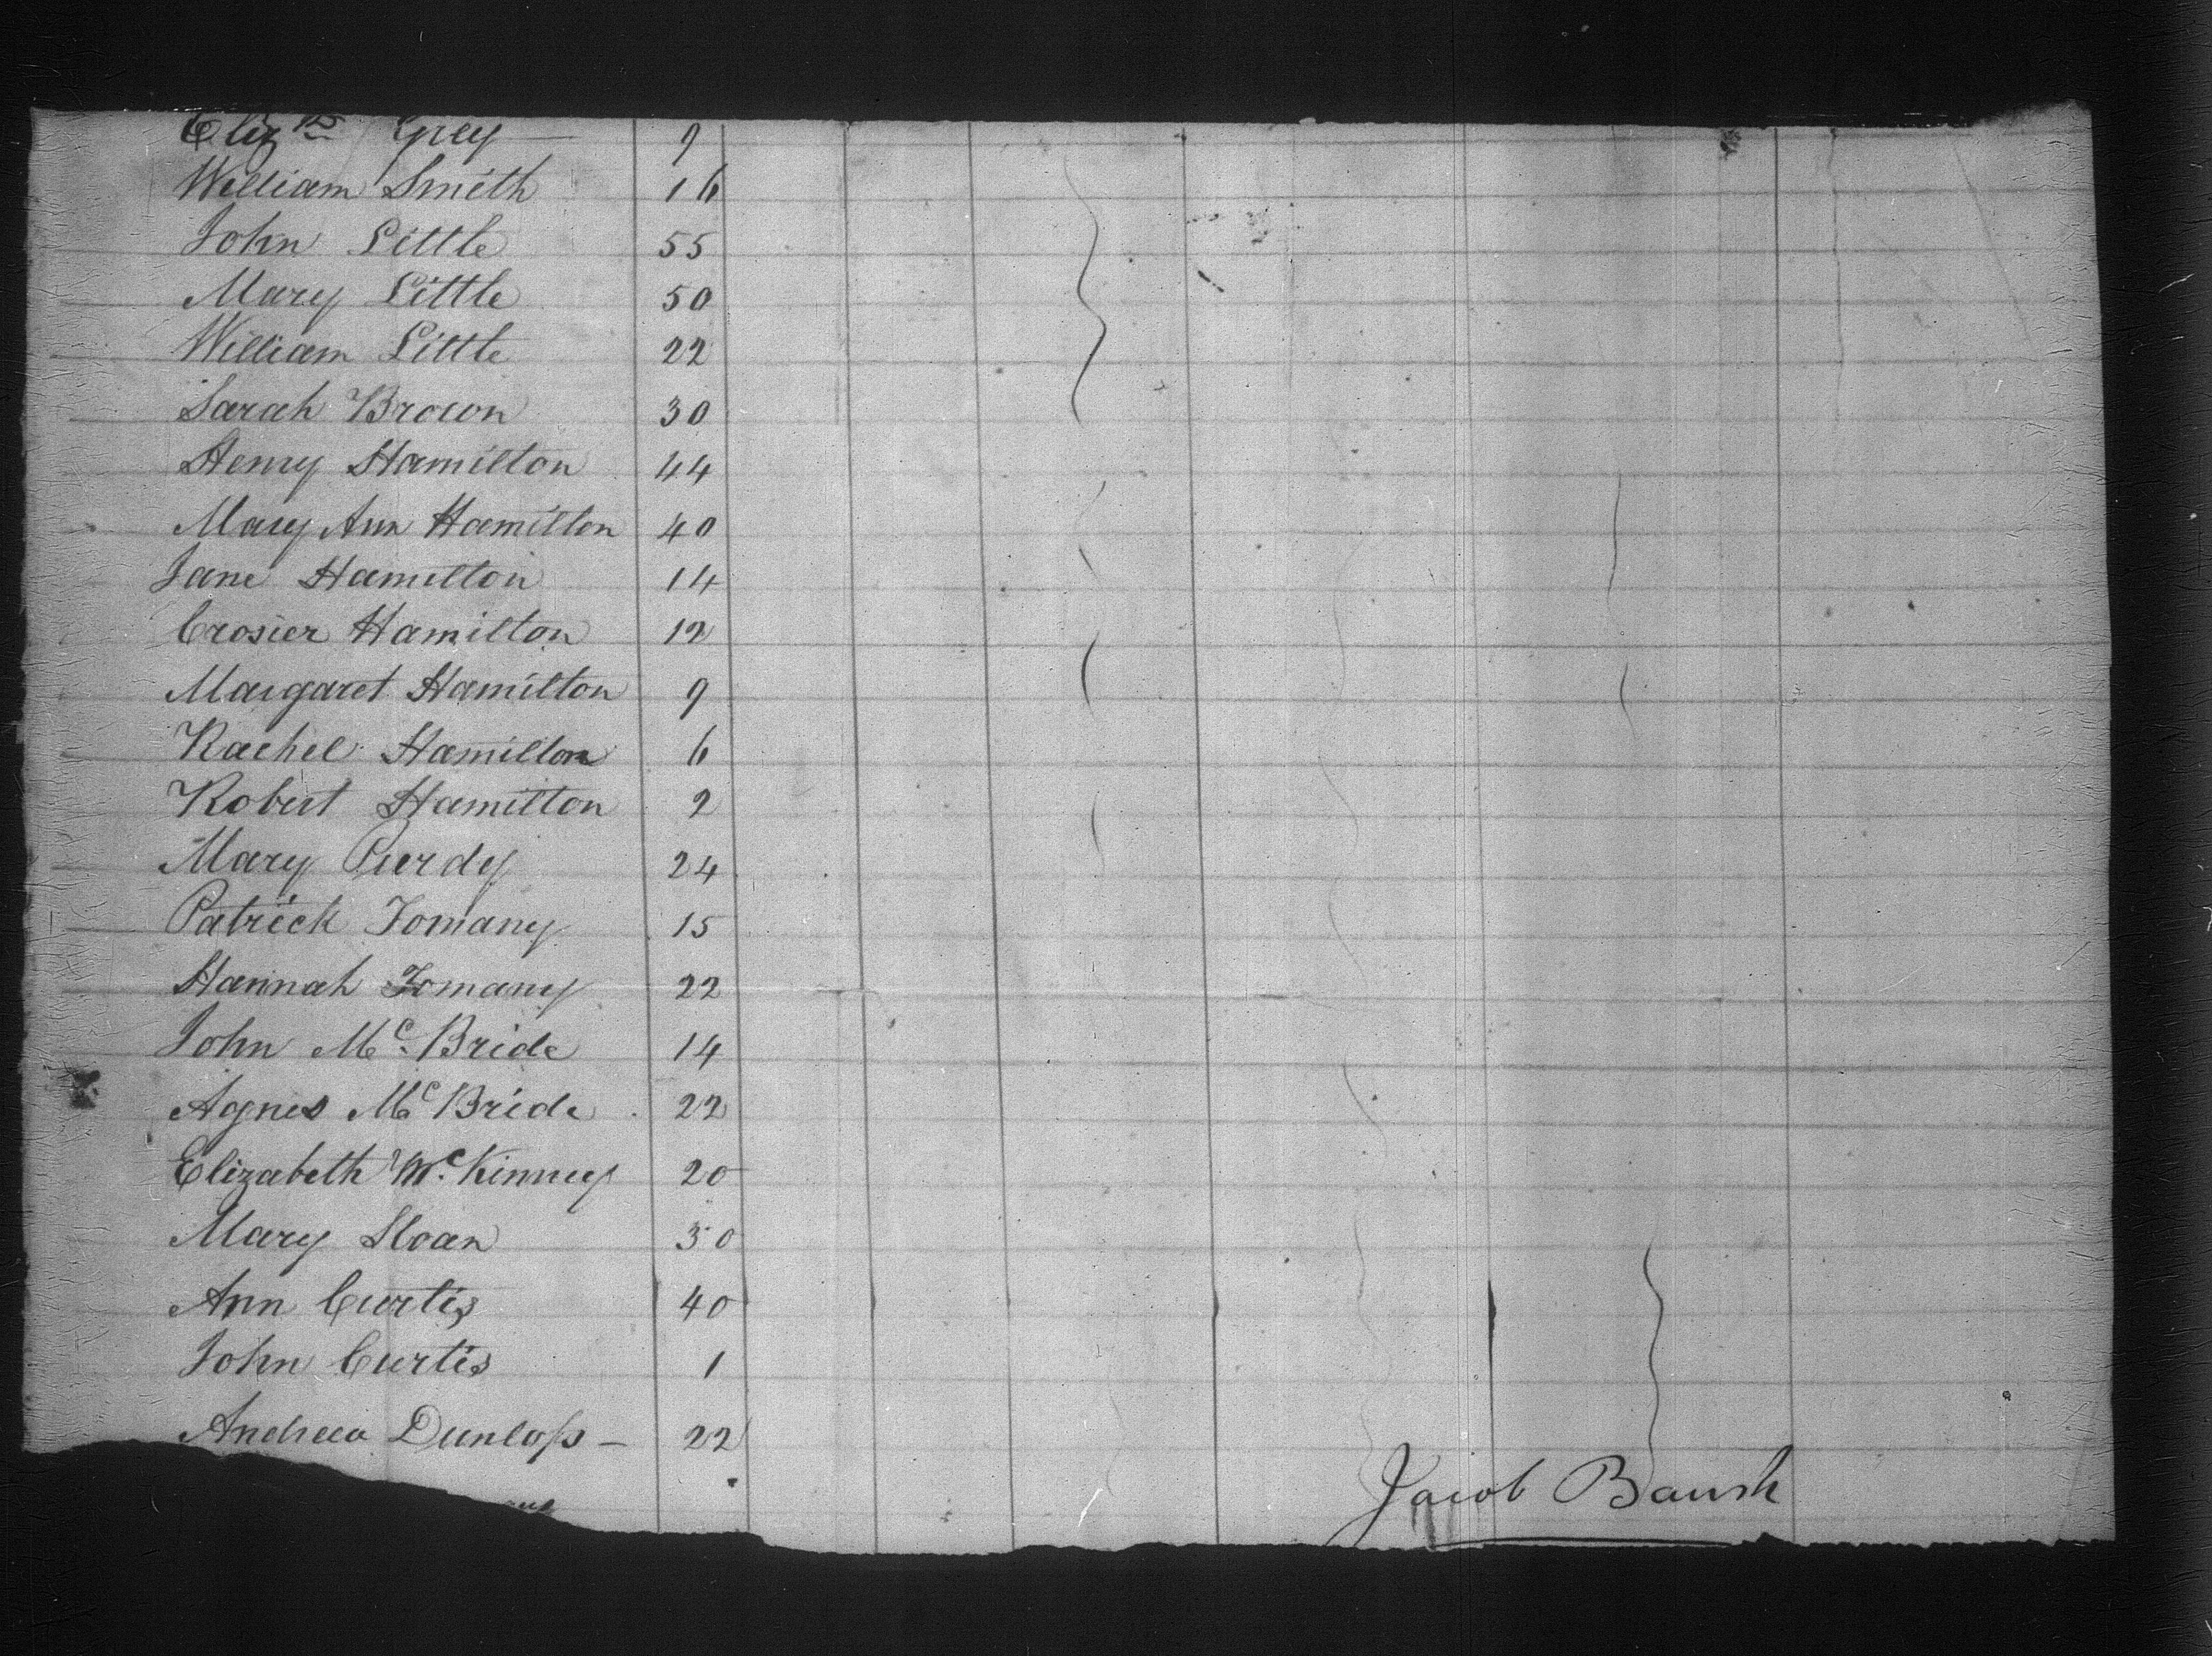 Elizth Grey 9
William Smith 16
John Little 55
Mary Little 50
William Little 22
Sarah Brown 30
Henry Hamilton 44
Mary Ann Hamilton 40
Jane Hamilton 14
Crosier Hamilton 12
Margaret Hamilton 9
Rachel Hamilton 6
Robert Hamilton 2
Mary Purdy 24
Patrick Tomany 15
Hannah Tomany 22
John Mc Bride 14
Agnes Mc Bride 22
Elizabeth Mc Kinney 20
Mary Sloan 30
Ann Curtis 40
John Curtis 1
Andrew Dunlop – 22
Jacob